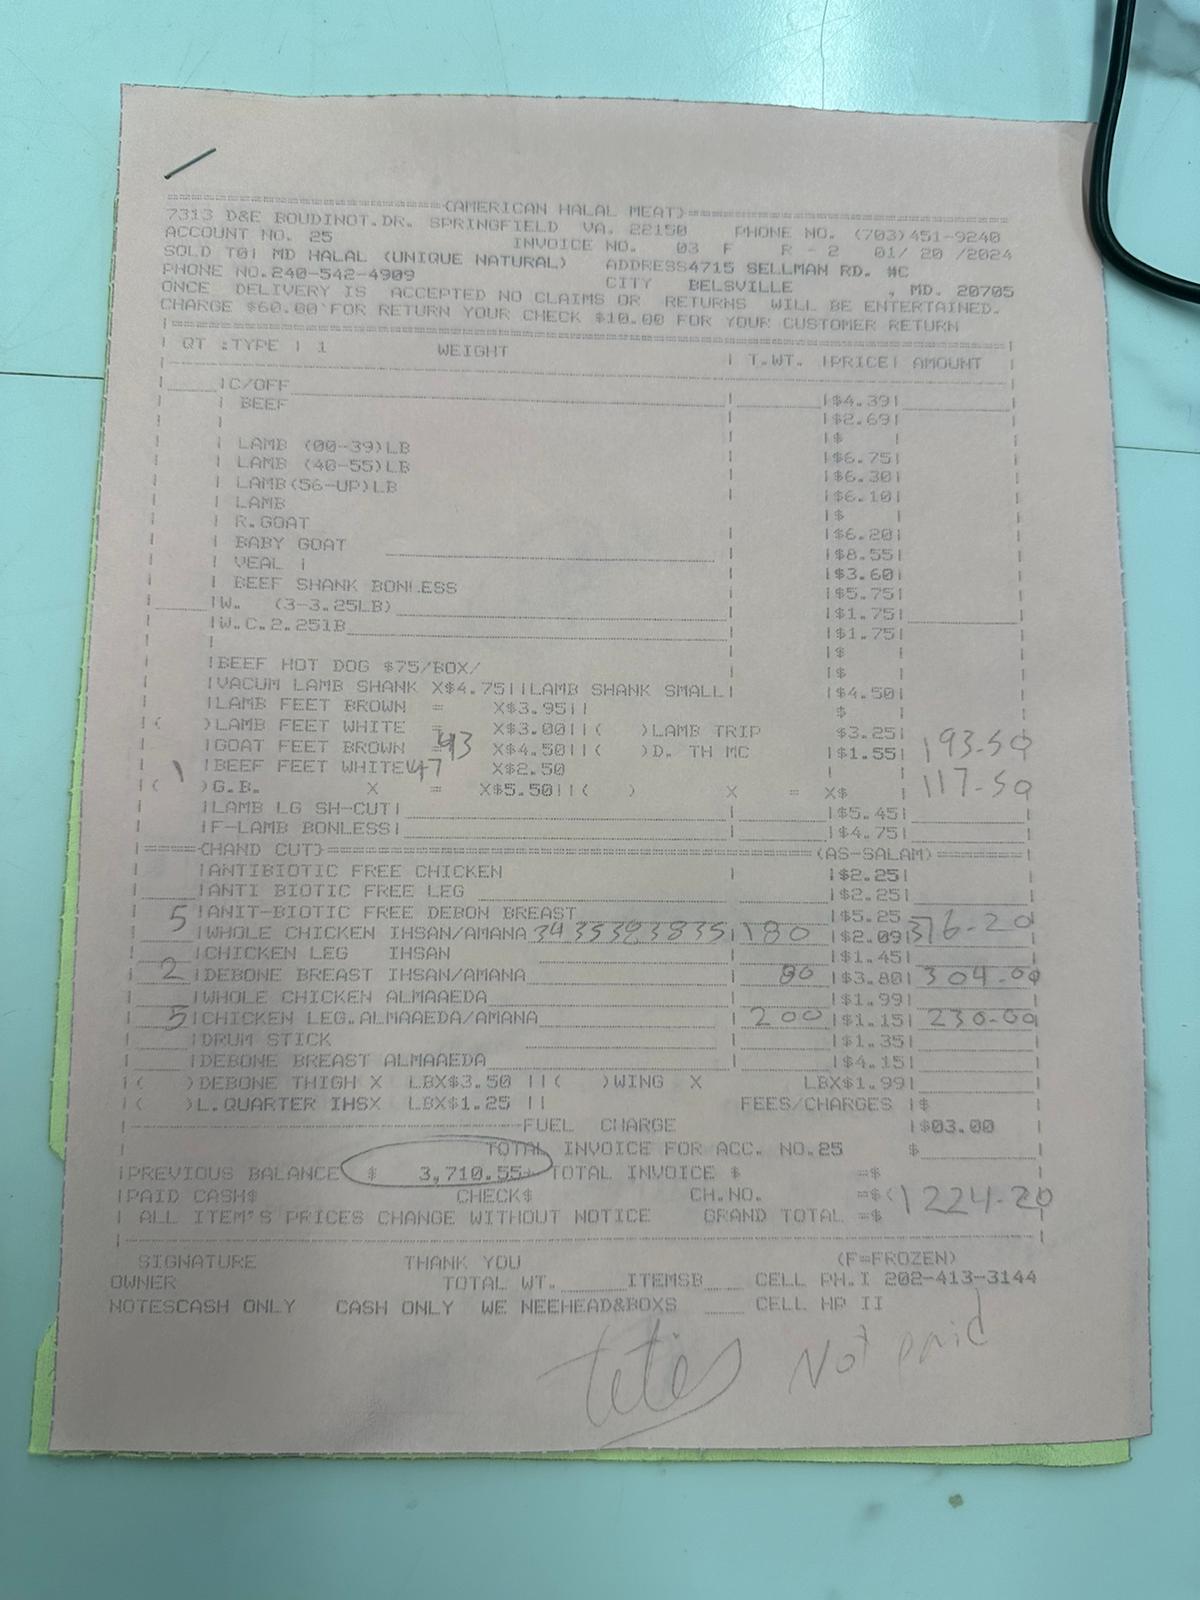 =(AMERICAN HALAL MEAT)=
7313 D&E BOUDINOT.DR. SPRINGFIELD VA. 22150 PHONE NO. (703)451-9240
ACCOUNT NO. 25 INVOICE NO. 03 F R - 2 01/ 20 /2024
SOLD T01 MD HALAL (UNIQUE NATURAL) ADDRESS4715 SELLMAN RD. #C
PHONE NO.240-542-4909 CITY BELSVILLE , MD. 20705
ONCE DELIVERY IS ACCEPTED NO CLAIMS OR RETURNS WILL BE ENTERTAINED.
CHARGE $60.00 FOR RETURN YOUR CHECK $10.00 FOR YOUR CUSTOMER RETURN
QT :TYPE | 1 WEIGHT | T.WT. |PRICE| AMOUNT
|C/OFF |$4.39|
| BEEF |$2.69|
|$ |
| LAMB (00-39)LB |$6.75|
| LAMB (40-55)LB |$6.30|
| LAMB(56-UP)LB |$6.10|
| LAMB |$ |
| R.GOAT |$6.20|
| BABY GOAT |$8.55|
| VEAL | |$3.60|
| BEEF SHANK BONLESS |$5.75|
|W. (3-3.25LB) |$1.75|
|W.C.2.251B |$1.75|
|$ |
|BEEF HOT DOG $75/BOX/ |$ |
|VACUM LAMB SHANK X$4.75||LAMB SHANK SMALL| |$4.50|
|LAMB FEET BROWN = X$3.95|| $ |
|( )LAMB FEET WHITE = X$3.00||( )LAMB TRIP $3.25|
|GOAT FEET BROWN =43 X$4.50||( )D. TH MC |$1.55| 193-50
1 |BEEF FEET WHITE 47 X$2.50 117-50
|( )G.B. X = X$5.50||( ) X = X$ |
|LAMB LG SH-CUT| |$5.45|
|F-LAMB BONLESS| |$4.75|
=(HAND CUT)= =(AS-SALAM)=
|ANTIBIOTIC FREE CHICKEN |$2.25|
|ANTI BIOTIC FREE LEG |$2.25|
|ANIT-BIOTIC FREE DEBON BREAST |$5.25
5 |WHOLE CHICKEN IHSAN/AMANA 34 35 38 38 35 | 180 |$2.09| 376-20
|CHICKEN LEG IHSAN |$1.45|
2 |DEBONE BREAST IHSAN/AMANA 80 |$3.80| 304-00
|WHOLE CHICKEN ALMAAEDA |$1.99|
5 |CHICKEN LEG.ALMAAEDA/AMANA 200 |$1.15| 230-00
|DRUM STICK |$1.35|
|DEBONE BREAST ALMAAEDA |$4.15|
|( )DEBONE THIGH X LBX$3.50 ||( )WING X LBX$1.99|
|( )L.QUARTER IHSX LBX$1.25 || FEES/CHARGES |$
FUEL CHARGE |$03.00
TOTAL INVOICE FOR ACC. NO.25 $
|PREVIOUS BALANCE $ 3,710.55 TOTAL INVOICE $ =$
|PAID CASH$ CHECK$ CH.NO. =$( 1224-20
| ALL ITEM'S PRICES CHANGE WITHOUT NOTICE GRAND TOTAL =$
SIGNATURE THANK YOU (F=FROZEN)
OWNER TOTAL WT. ITEMSB CELL PH.I 202-413-3144
NOTESCASH ONLY CASH ONLY WE NEEHEAD&BOXS CELL HP II
Not paid